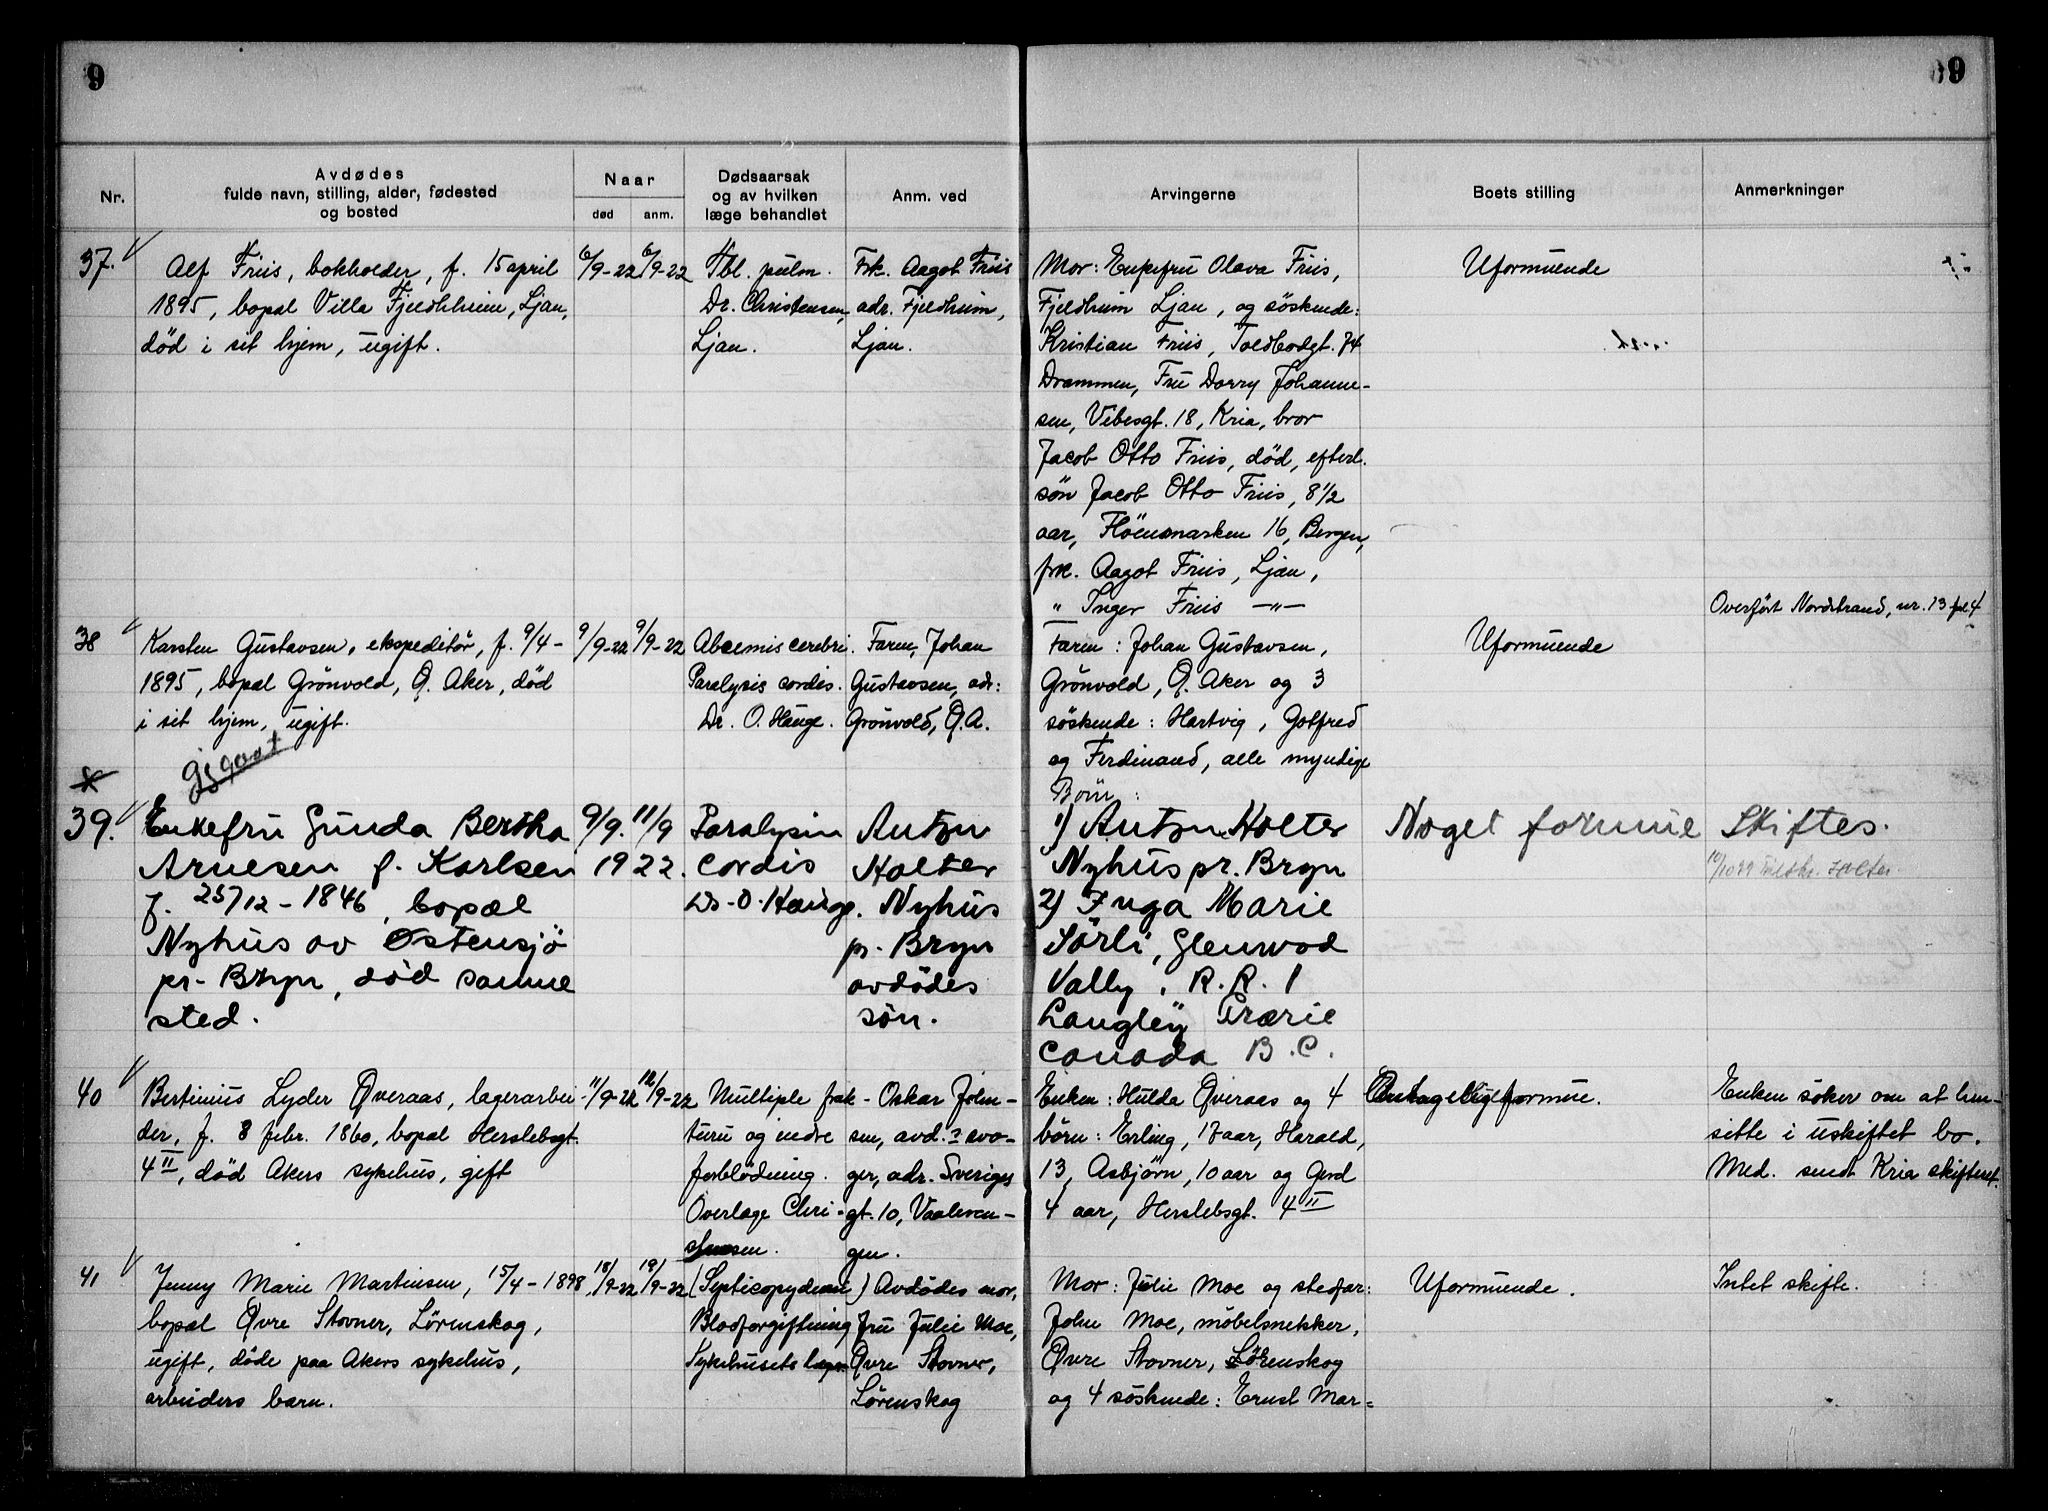 9
9
Nr.
Avdødes
fulde navn, stilling, alder, fødested
og bosted
Naar
død
anm.
Dødsaarsak
og av hvilken
læge behandlet
Anm. ved
Arvingerne
Boets stilling
Anmerkninger
37.
Alf Friis, bokholder, f. 15 april
1895, bopal Villa Fjeldhheim, Ljan,
død i sit hjem, ugift.
6/9-22
6/9-22
Tbl. pulm.
Dr. Christensen,
Ljan.
Frk. Aagot Friis
adr. Fjeldheim,
Ljan.
Mor: Enkefru Olava Friis,
Fjeldheim Ljan, og söskende:
Kristian Friis, Toldbodgt. 74
Drammen, Fru Dorry Johanne-
sen, Vibesgt. 18, Kria, bror
Jacob Otto Friis, död, efterl.
sön Jacob Otto Friis, 8 1/2
aar, Flöensmarken 16, Bergen,
frk. Aagot Friis, Ljan,
" Inger Friis -"-
Uformuende
Overført Nordstrand, nr. 13 fol 4
38
Karsten Gustavsen, ekspeditör, f. 9/4-
1895, bopal Grönvold, Ø. Aker, död
i sit hjem, ugift.
9/9-22
9/9-22
cerebri.
Paralysis cordis.
Dr. O. Hauge.
Faren, Johan
Gustavsen, adr:
Grönvold, Ø.A.
Faren: Johan Gustavsen,
Grönvold, Ø. Aker og 3
söskende: Hartvig, Gotfred
og Ferdinand, alle myndige
Uformuende
39.
Enkefru Gunda Bertha
Arnesen f. Karlsen
f. 25/12-1846, bopæl
Nyhus av Østensjö
pr. Bryn, död samme
sted.
9/9. 11/9
1922.
Paralysin
Cordis
Dr. O. Hauge.
Anton
Holter
Nyhus
pr. Bryn
avdödes
sön.
Börn:
1) Anton Holter
Nyhus pr. Bryn
2) Inga Marie
Sörli, Glenwod
Vally, R.R. 1
Langley Prærie
Canada B.C.
Noget formue
Skiftes.
Holter.
40
Bertinius Lyder Øveraas, lagerarbei-
der, f. 8 febr. 1860, bopal Herslebsgt.
4 II, död Akers sykehus, gift
11/9-22
12/9-22
Multiple frak-
turu og indre
forblödning.
Overlæge Chri-
stensen.
Oskar John-
sen, avd. svo-
ger, adr. Sveriges
gt. 10, Vaaleren-
gen.
Enken: Hulda Øveraas og 4
börn: Erling, 17 aar, Harald,
13, Asbjørn, 10 aar og Gerd
4 aar, Herslebsgt. 4 II
Antagelig formue.
Enken søker om at hen-
sitte i uskiftet bo.
Med. sendt Kria skifteret.
41
Jenny Marie Martinsen, 15/4-1898
bopal Øvre Stovner, Lørenskog,
ugift, døde paa Akers sykehus,
arbeiders barn.
18/9-22
19/9-22
(Septicopydemi)
Blodforgiftning
Sykehusets læger
Avdødes mor,
fru Julie Moe,
Øvre Stovner,
Lørenskog
Mor: Julie Moe og stedfar:
John Moe, möbelsnekker,
Øvre Stovner, Lörenskog
og 4 söskende: Ernst Mar=
Uformuende.
Intet skifte.